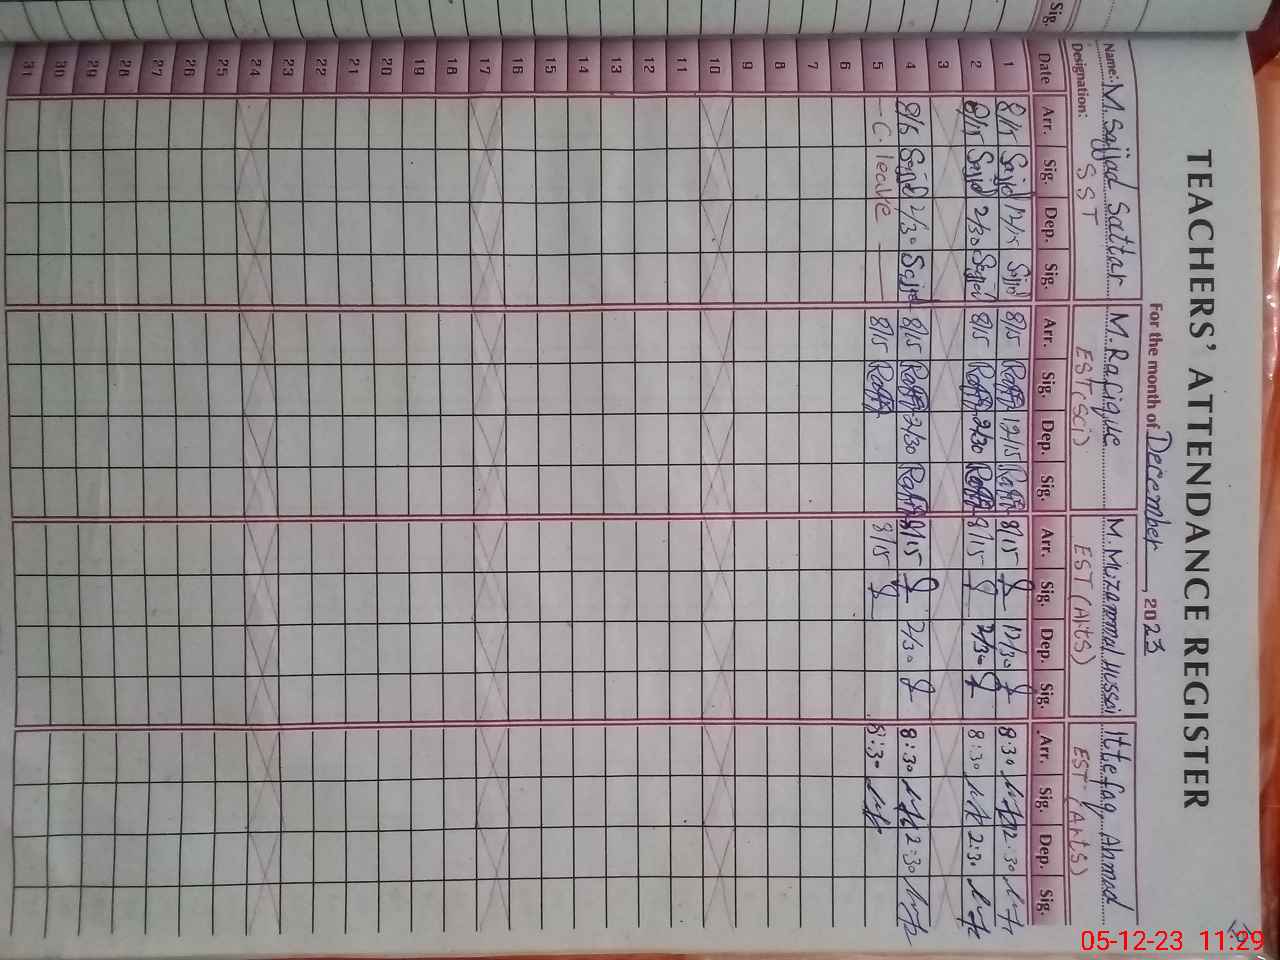 TEACHERS' ATTENDANCE REGISTER
For the month of December, 2023
Name: M. Sajjad Sattar M. Rafique M. Muzammal Hussai Ittefaq Ahmad
Designation: SST EST (Sci) EST (Arts) EST (Arts)
Date Arr. Sig. Dep. Sig. Arr. Sig. Dep. Sig. Arr. Sig. Dep. Sig. Arr. Sig. Dep. Sig.
1 8/15 Sajjad 12/15 Sajjad 8/15 Rafiq 12/15 Rafiq 8/15 12/30 8:30 12:30
2 8/15 Sajjad 2/30 Sajjad 8/15 Rafiq 2/30 Rafiq 8/15 2/30 8:30 2:30
3
4 8/15 Sajjad 2/30 Sajjad 8/15 Rafiq 2/30 Rafiq 8/15 2/30 8:30 2:30
5 C. leave 8/15 Rafiq 8/15 8:30
6
7
8
9
10
11
12
13
14
15
16
17
18
19
20
21
22
23
24
25
26
27
28
29
30
31
Sig.
05-12-23 11:29